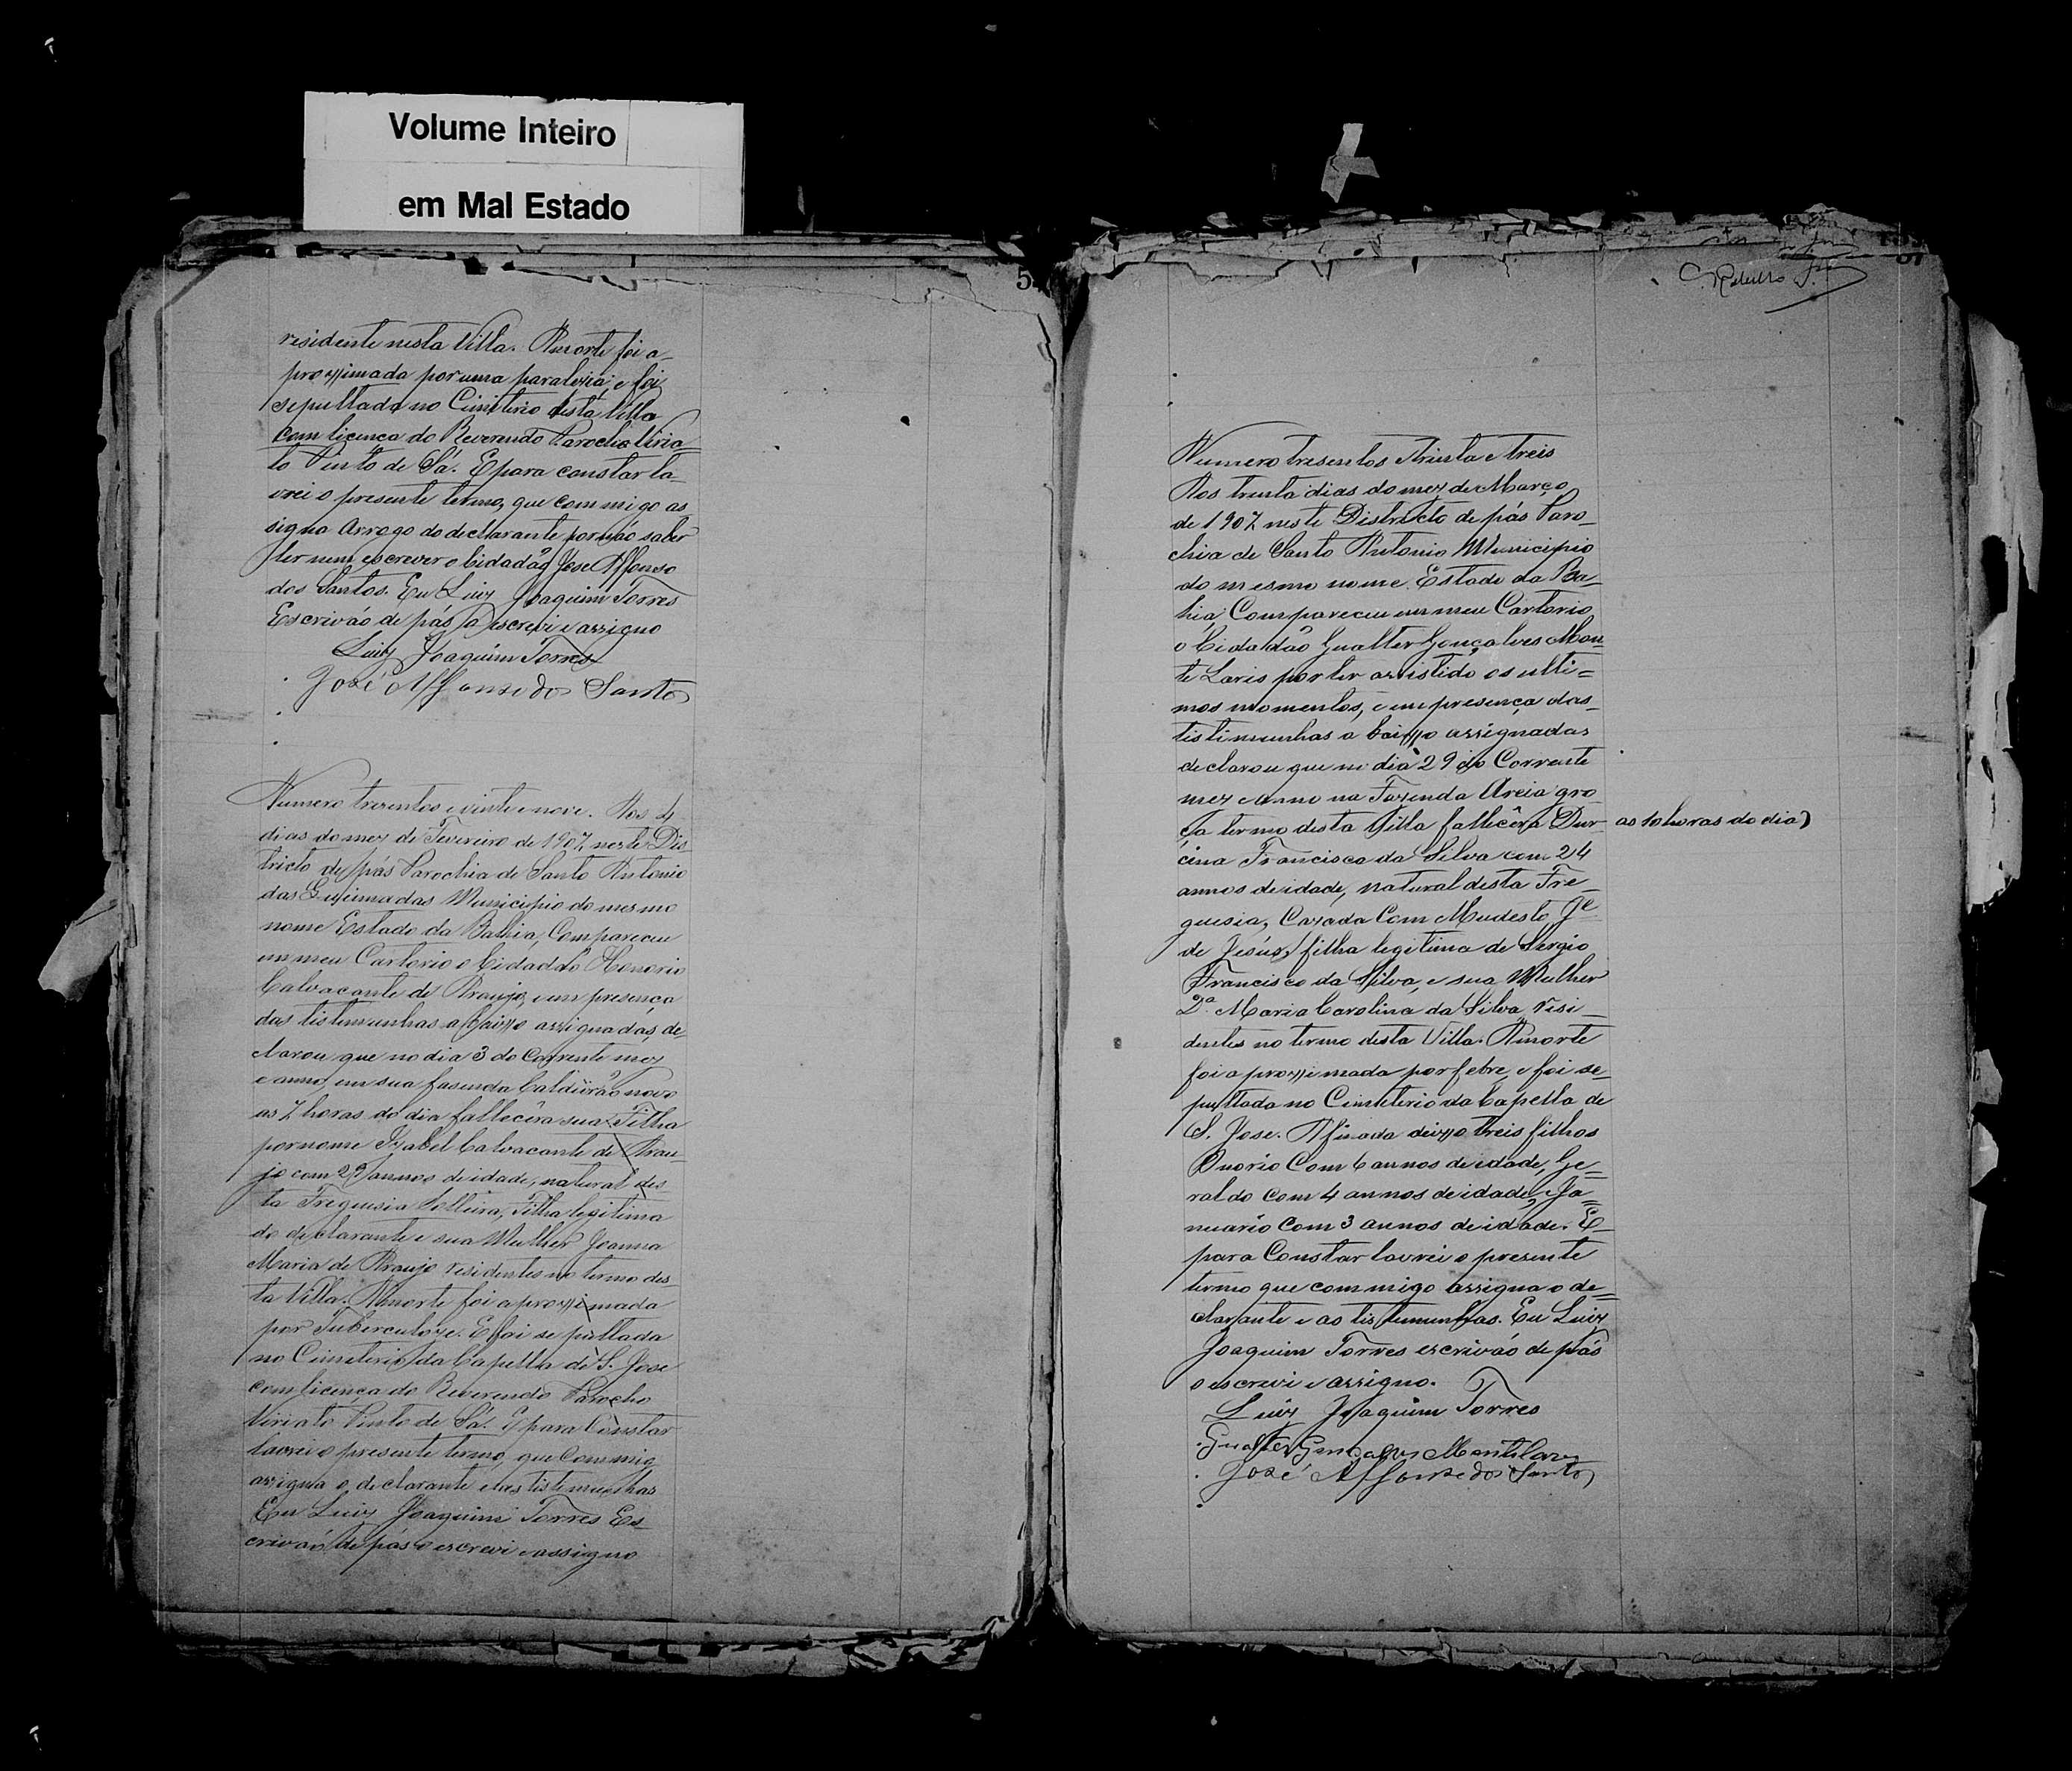 Volume Inteiro
em Mal Estado
5
residente nesta Villa. Amorte foi a-
proxximada por uma paralezia e foi
sepultado no Cimiterio desta Villa
com licença do Reverendo Parocho Viria-
to Pinto de Sá. E para constar la-
vrei o presente termo, que commigo as
signa Arrogo do declarante por não saber
ler nem escrever o Cidadão José Affonso
dos Santos. Eu Luiz Joaquim Torres
Escrivão de pás o escrevi e assigno
Luiz Joaquim Torres
José Affonso dos Santos
Numero trezentos e vinte e nove. Aos 4
dias do mez de Fevereiro de 1907 neste Dis
tricto de pás Parochia de Santo Antonio
das Queimadas Municipio do mesmo
nome Estado da Bahia, Compareceu
em meu Cartorio o Cidadão Honorio
Calvacante de Araujo, e em presença
das tistemunhas abaixo assignadas, de-
clarou que no dia 3 do Corrente mez
e anno em sua fasenda Caldeirão novo
as 7 horas do dia fallecêra sua Filha
por nome Izabel Calvacante de Arau-
jo com 29 annos de idade, natural des
ta Freguisia Solteira, Filha legitima
do declarante e sua Mulher Joanna
Maria de Araujo residentes no termo des-
ta Villa. Amorte foi aproxximada
por Tuberculoze. E foi sepultada
no Cimiterio da Capella de S. Jose
com licença do Reverendo Parocho
Viriato Pinto de Sá. E para Constar
lavrei o presente termo, que Commig
assigna o declarante e as tistemunhas
Eu Luiz Joaquim Torres Es
crivão de pás o escrevi e assigno
C. Rabello
Numero tresentos e trinta e treis
Aos trinta dias do mez de Março
de 1907 neste Districto de pás Paro-
chia de Santo Antonio Municipio
do mesmo nome. Estado da Ba-
hia, Compareceu em meu Cartorio
o Cidadão Gualter Gonçalves Mon-
te Laris por ter assistido os ulti-
mos momentos, e em presença das
tistimunhas abaixxo assignadas
declarou que no dia 29 do Corrente
mez e anno na Fazenda Areia gro
ça termo desta Villa fallecêra Dur- as 10 horas do dia)
cina Francisca da Silva com 24
annos de idade, natural desta Fre-
guesia, Cazada Com Mudesto Je
de Jesús, filha legitima de Sergio
Francisco da Silva, e sua Mulher
Da. Maria Carolina da Silva, risi-
dentes no termo desta Villa. Amorte
foi aproxximada por febre, e foi se-
pultada no Cimiterio da Capella de
S. Jose. Afinada deixxo treis filhos
Onorio Com 6 annos de idade, Ge-
raldo com 4 annos de idade, e Ja-
nuario Com 3 annos de idade. E
para Constar lavrei o presente
termo que commigo assigna o de-
clarante e as tistemunhas. Eu Luiz
Joaquim Torres escrivão de pás
o escrevi e assigno.
Luiz Joaquim Torres
Gualter Gonçalves Montelares
José Affonso dos Santos